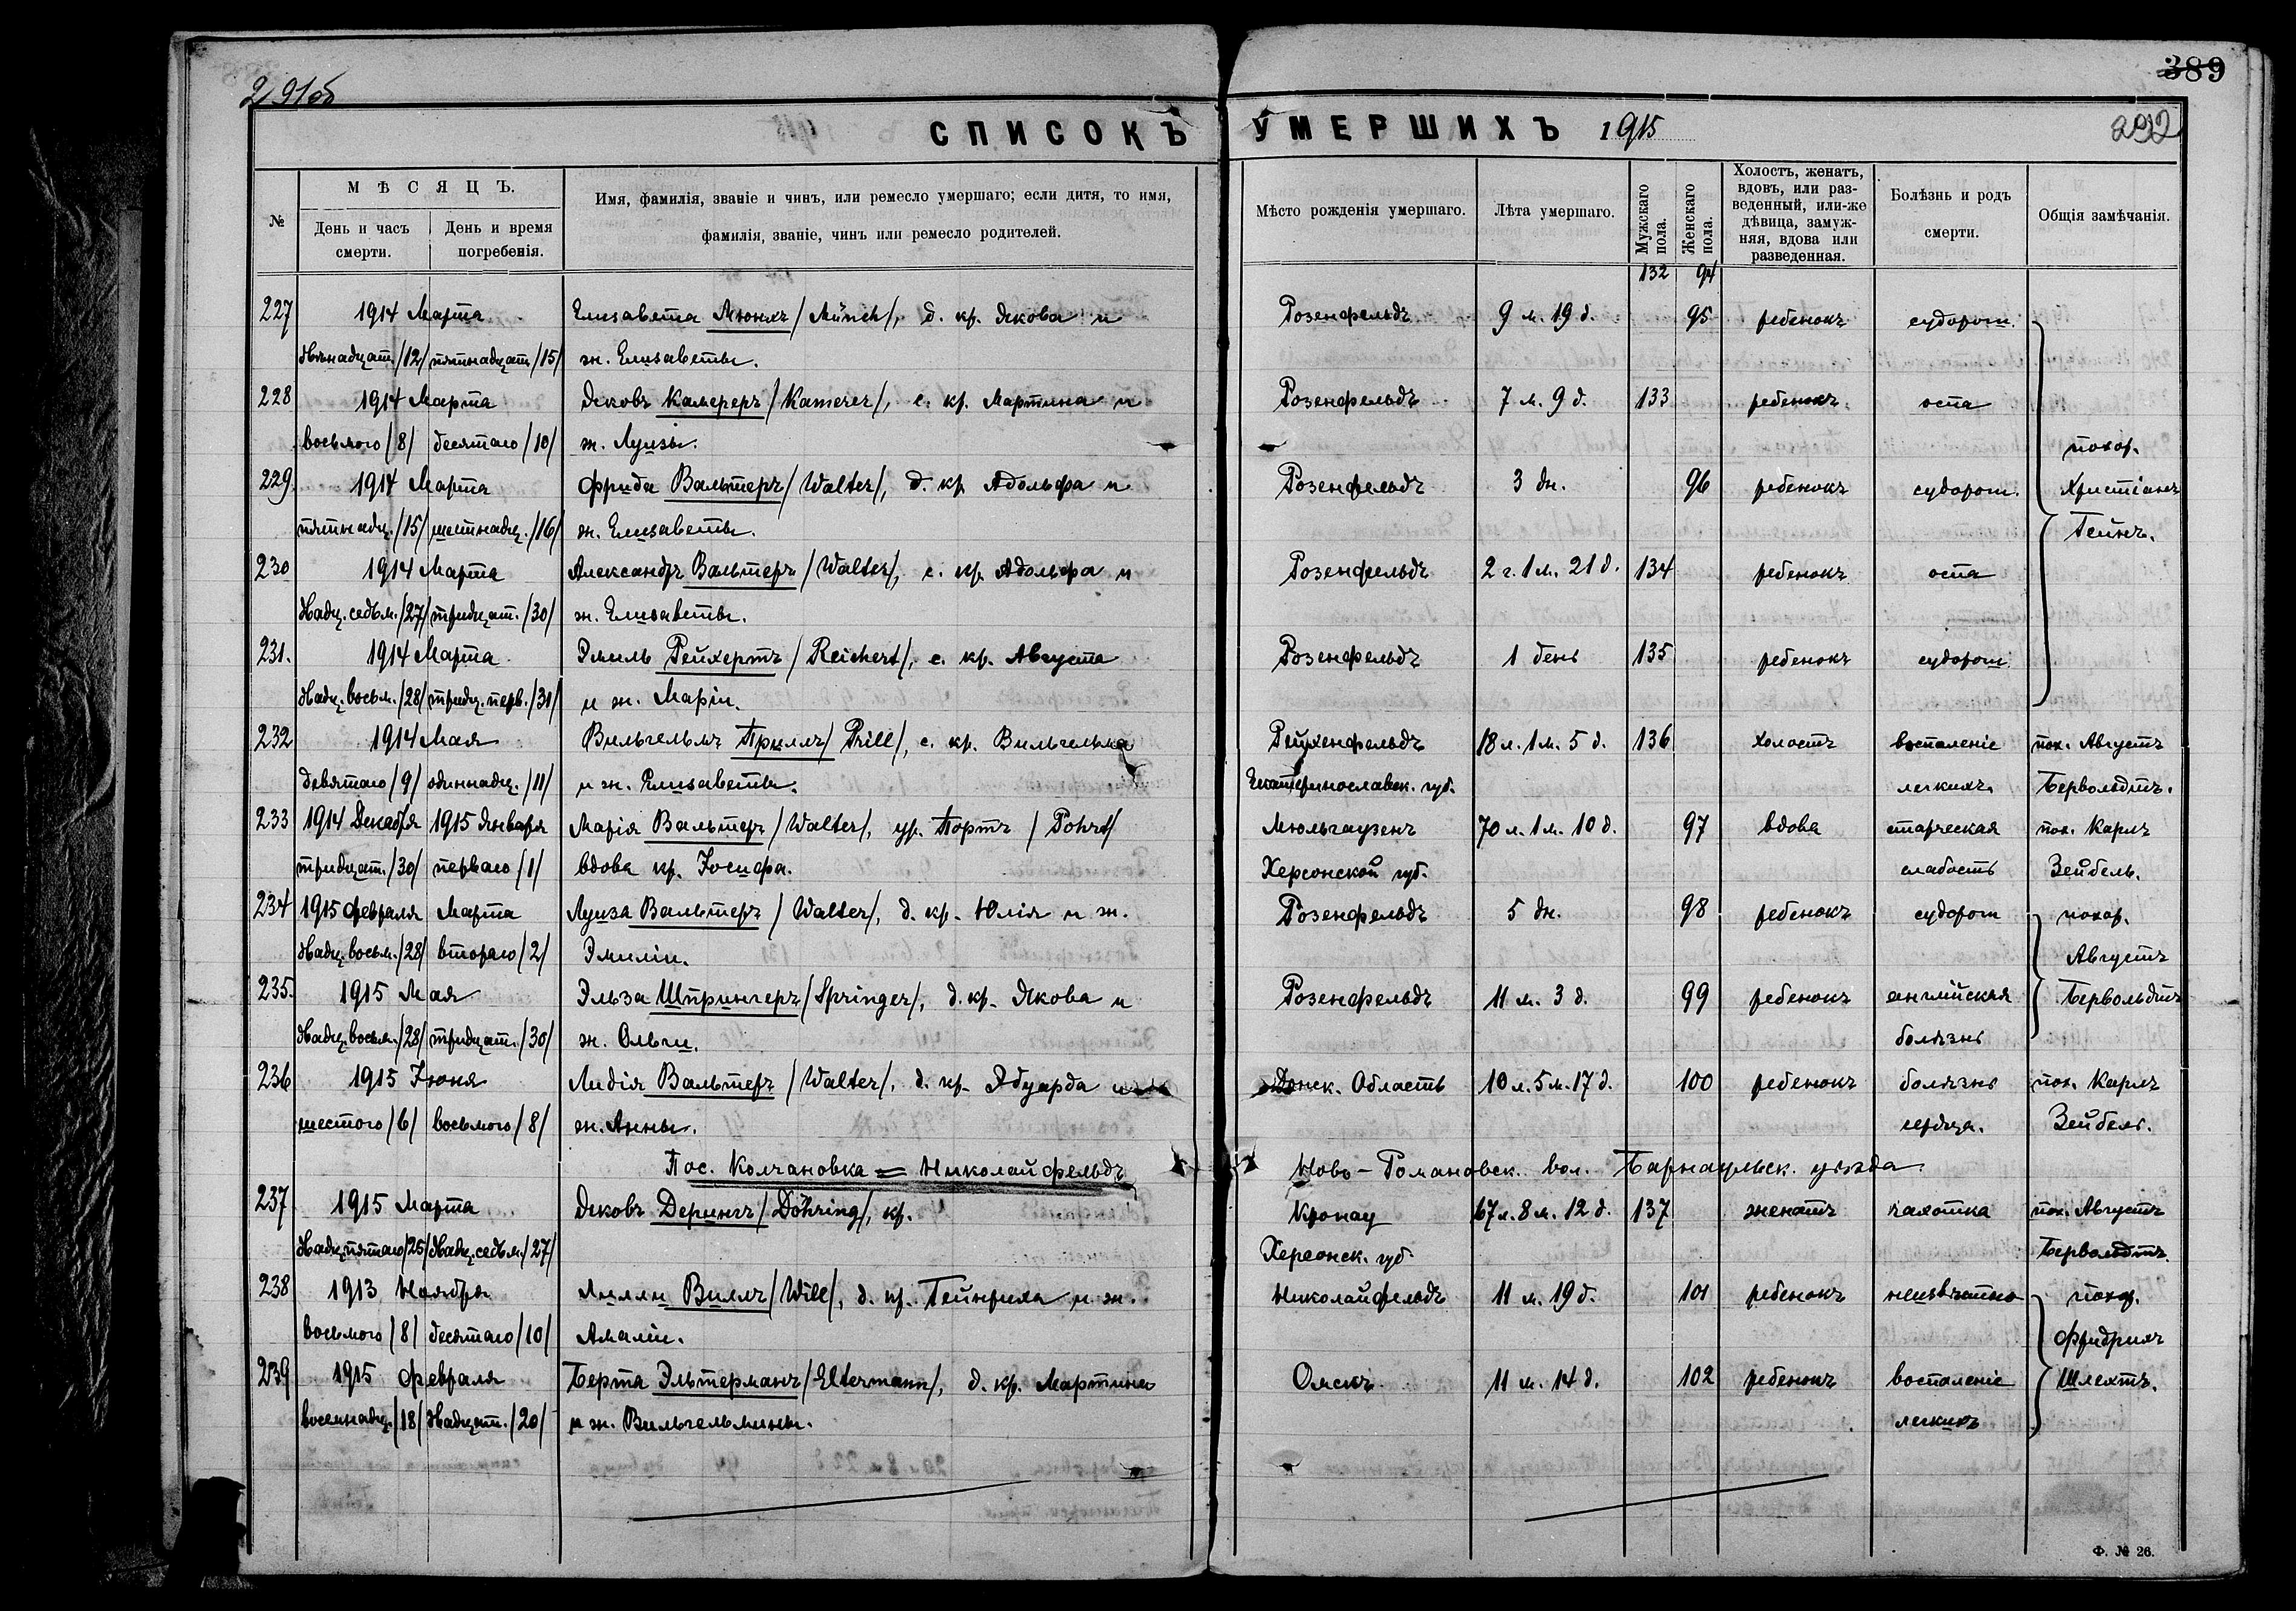 291об
389
СПИСОКЪ УМЕРШИХЪ 1915
292
№
МѢСЯЦЪ.
День и часъ смерти.
День и время погребенія.
Имя, фамилія, званіе и чинъ, или ремесло умершаго; если дитя, то имя,
фамилія, званіе, чинъ или ремесло родителей.
Мѣсто рожденія умершаго.
Лѣта умершаго.
Мужскаго пола.
Женскаго пола.
Холостъ, женатъ,
вдовъ, или раз-
веденный, или-же
дѣвица, замуж-
няя, вдова или
разведенная.
Болѣзнь и родъ
смерти.
Общія замѣчанія.
132 94
227 1914 Марта Елизавета Мюнхъ /Münch/, д. кр. Якова и Розенфельдъ 9 м. 19 д. 95 ребенокъ судорог.
двѣнадцат. /12/ пятнадцат. /15/ ж. Елизаветы.
228 1914 Марта Яковъ Камереръ /Kamerer/, с. кр. Мартина и Розенфельдъ 7 м. 9 д. 133 ребенокъ оспа
восьмого /8/ десятаго /10/ ж. Луизы. похор.
229. 1914 Марта Фрида Вальтеръ /Walter/, д. кр. Адольфа и Розенфельдъ 3 дн. 96 ребенокъ судорог. Христіанъ
пятнадц. /15/ шестнадц. /16/ ж. Елизаветы. Гейнъ.
230 1914 Марта Александръ Вальтеръ /Walter/, с. кр. Адольфа и Розенфельдъ 2 г. 1 м. 21 д. 134 ребенокъ оспа
двадц. седьм. /27/ тридцат. /30/ ж. Елизаветы.
231. 1914 Марта Эмиль Рейхертъ /Reichert/, с. кр. Августа Розенфельдъ 1 день 135 ребенокъ судорог
двадц. восьм. /28/ тридц. перв. /31/ и ж. Маріи.
232 1914 Мая Вильгельмъ Приллъ /Prill/, с. кр. Вильгельма Рейхенфельдъ 18 л. 1 м. 5 д. 136 холостъ воспаленіе пох. Августъ
девятаго /9/ одиннадц. /11/ и ж. Елизаветы. Екатеринославск. губ. легкихъ. Бервольдтъ.
233 1914 Декабря 1915 Января Марія Вальтеръ /Walter/, ур. Портъ /Pohrt/ Мюльгаузенъ 70 л. 1 м. 10 д. 97 вдова старческая пох. Карлъ
тридцат. /30/ перваго /1/ вдова кр. Іосифа. Херсонской губ. слабость Зейбель.
234 1915 Февраля Марта Луиза Вальтеръ /Walter/, д. кр. Юлія и ж. Розенфельдъ 5 дн. 98 ребенокъ судорог похор.
двадц. восьм. /28/ второго /2/ Эмиліи. Августъ
235. 1915 Мая Эльза Шпрингеръ /Springer/, д. кр. Якова и Розенфельдъ 11 м. 3 д. 99 ребенокъ англійская Бервольдтъ
двадц. восьм. /28/ тридцат. /30/ ж. Ольги. болѣзнь
236 1915 Іюня Лидія Вальтеръ /Walter/, д. кр. Эдуарда и Донск. Область 10 л. 5 м. 17 д. 100 ребенокъ болѣзнь пох. Карлъ
шестого /6/ восьмого /8/ ж. Анны. сердца. Зейбель.
Пос. Колчановка = Николайфельдъ Ново-Романовск. вол. Барнаульск. уѣзда
237 1915 Марта Яковъ Дерингъ /Döhring/, кр. Кронау 67 л. 8 м. 12 д. 137 женатъ чахотка пох. Августъ
двадц. пятаго /25/ двадц. седьм. /27/ Херсонск. губ. Бервольдтъ.
238 1913 Ноября Лилли Виллъ /Will/, д. кр. Гейнриха и ж. Николайфельдъ 11 м. 19 д. 101 ребенокъ неизвѣстно похор.
восьмого /8/ десятаго /10/ Амаліи. Фридрихъ
239 1915 Февраля Берта Эльтерманъ /Eltermann/, д. кр. Мартина Омскъ 11 м. 14 д. 102 ребенокъ воспаленіе Шлехтъ.
восемнадц. /18/ двадцат. /20/ и ж. Вильгельмины. легкихъ
Ф. № 26.